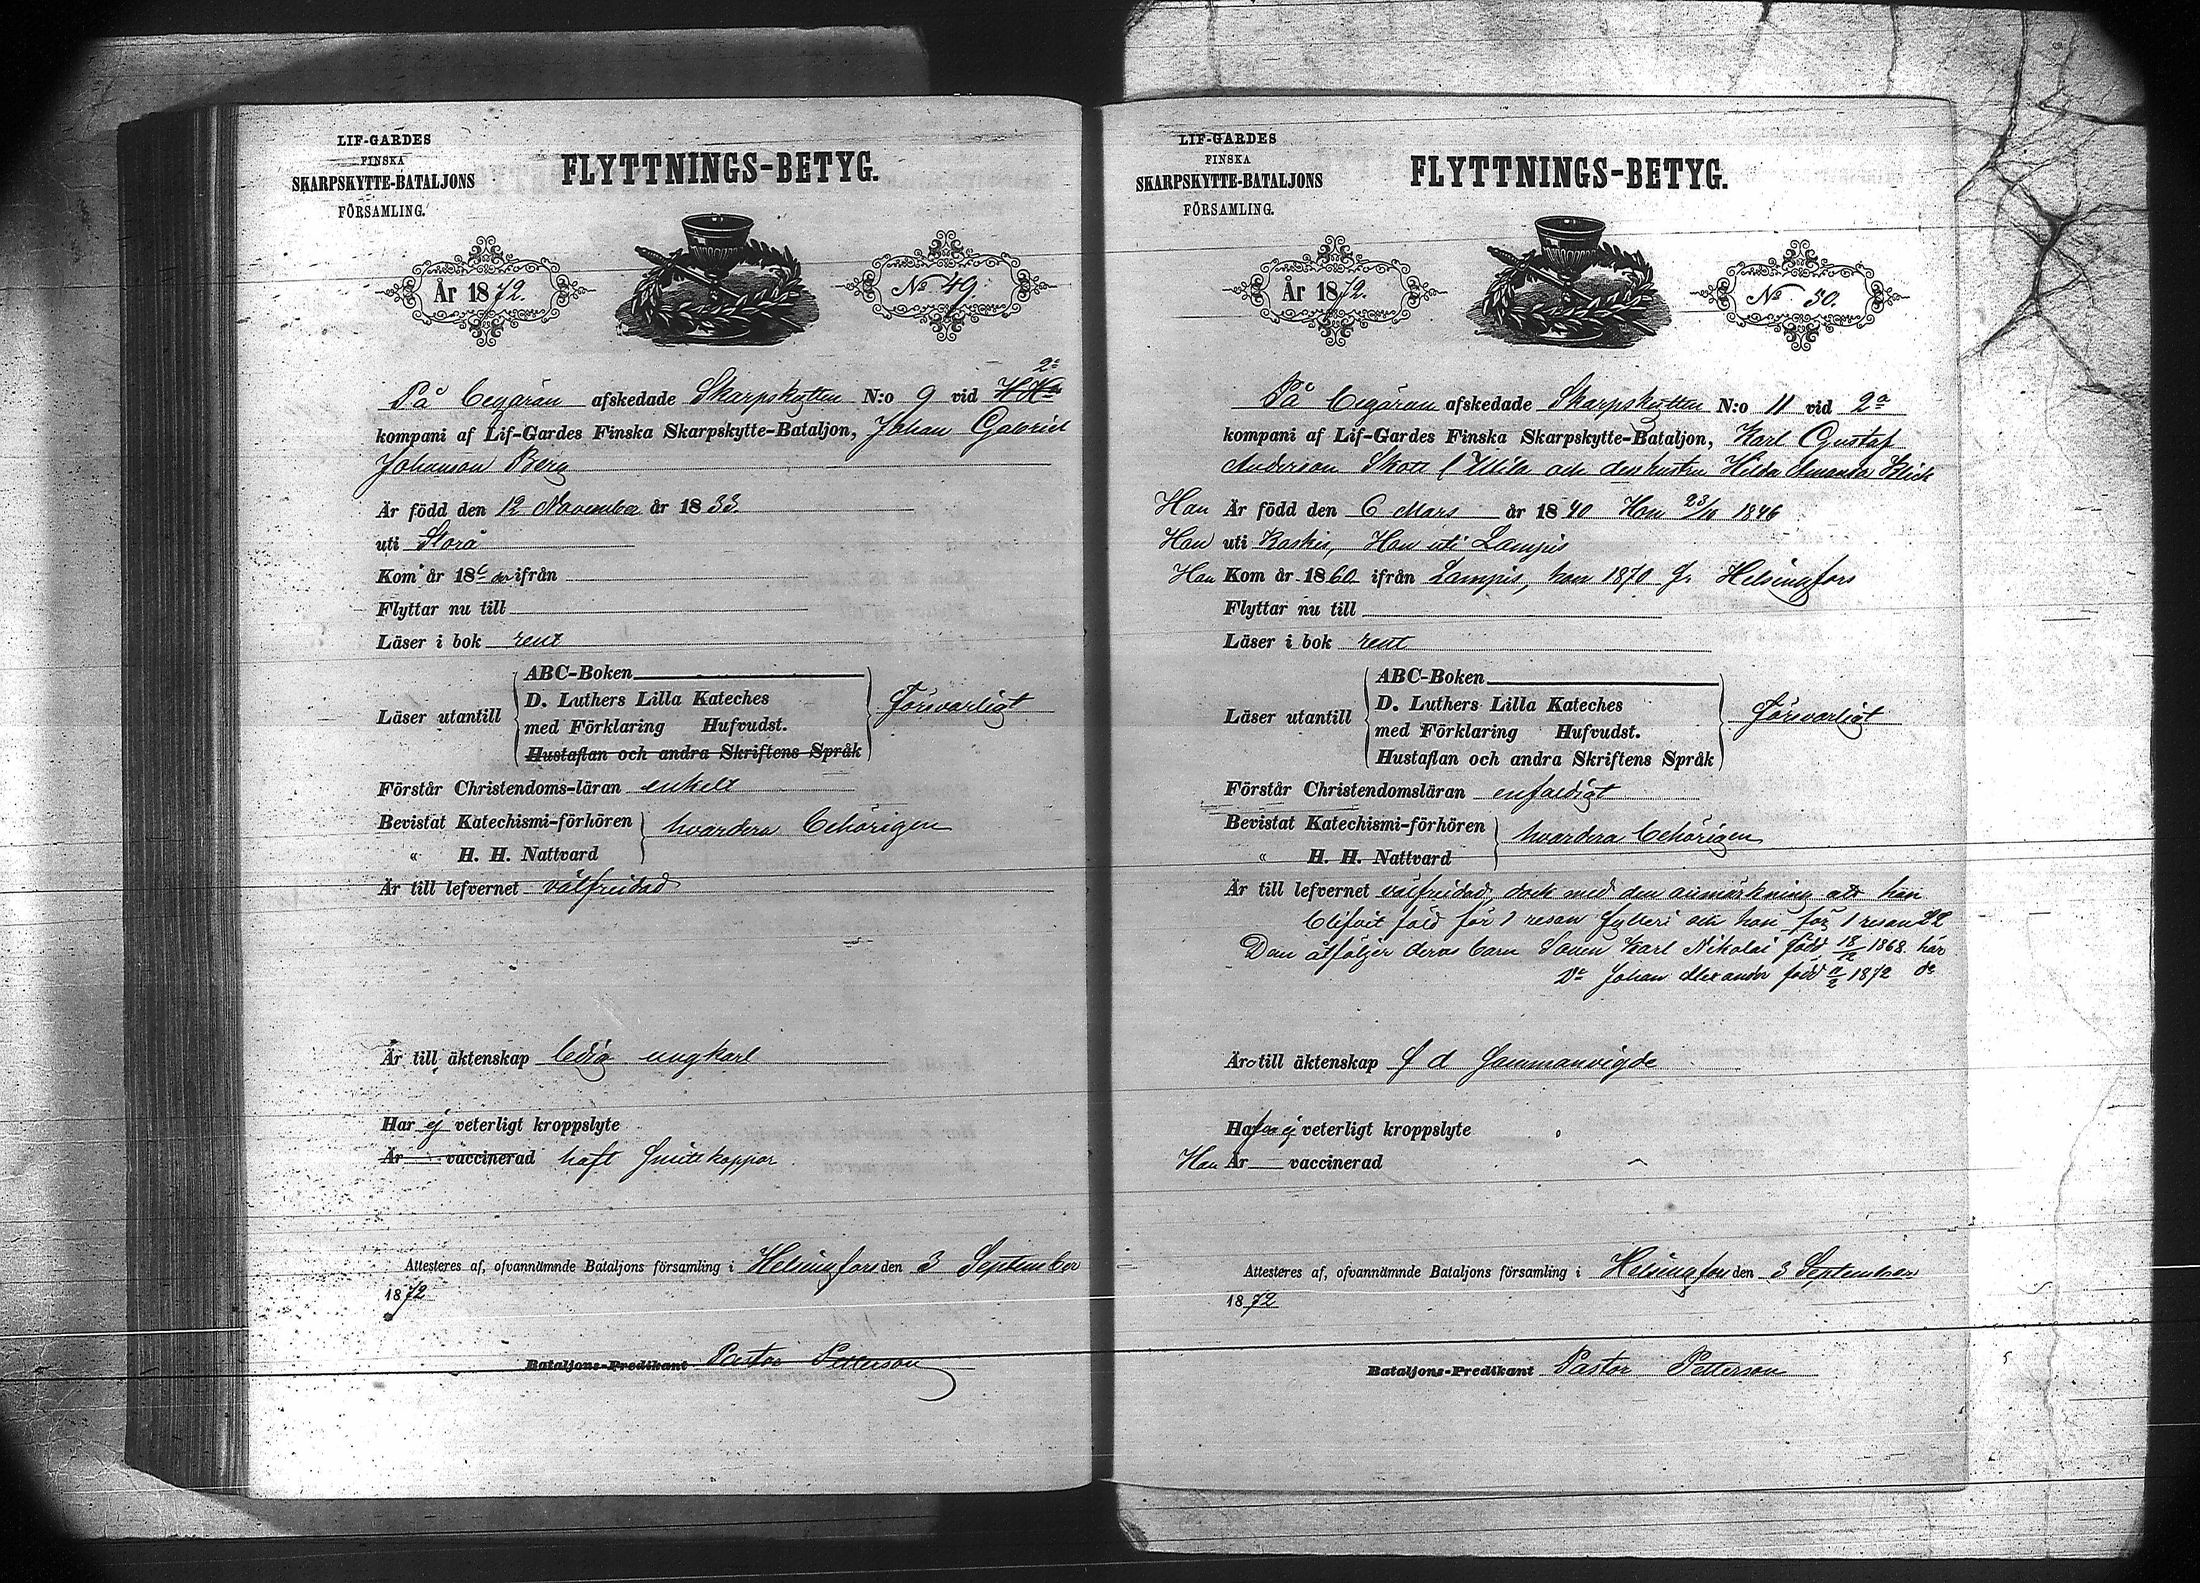 LIF-GARDES
FINSKA
SKARPSKYTTE-BATALJONS
FÖRSAMLING.
FLYTTNINGS-BETYG.
År 1872.
No 49.
På begäran afskedade Skarpskytten N:o 9 vid 2a
kompani af Lif-Gardes Finska Skarpskytte-Bataljon, Johan Gabriel
Johanson Berg
Är född den 12 November år 1833
uti Storå
Kom år 18 ifrån
Flyttar nu till
Läser i bok rent
ABC-Boken
D. Luthers Lilla Kateches
Läser utantill med Förklaring Hufvudst. Försvarligt
Hustaflan och andra Skriftens Språk
Förstår Christendoms-läran enkelt
Bevistat Katechismi-förhören hvardera behörigen
" H. H. Nattvard
Är till lefvernet välfreidad
Är till äktenskap ledig ungkarl
Har ej veterligt kroppslyte
Är vaccinerad haft Smittkoppor
Attesteres af, ofvannämnde Bataljons församling i Helsingfors den 3 September
1872
Bataljons-Predikant Pastor Petterson
LIF-GARDES
FINSKA
SKARPSKYTTE-BATALJONS
FÖRSAMLING.
FLYTTNINGS-BETYG.
År 1872.
No 50.
På begäran afskedade Skarpskytten N:o 11 vid 2a
kompani af Lif-Gardes Finska Skarpskytte-Bataljon, Karl Gustaf
Anderson Skott och dess hustru Hilda Amanda Blick
Han Är född den 6 Mars år 1840 Hon 23/10 1846
Han uti Koskis, Hon uti Lampis
Han Kom år 1860 ifrån Lampis, hon 1870 fr Helsingfors
Flyttar nu till
Läser i bok rent
ABC-Boken
D. Luthers Lilla Kateches
Läser utantill med Förklaring Hufvudst. Försvarligt
Hustaflan och andra Skriftens Språk
Förstår Christendomsläran enfaldigt
Bevistat Katechismi-förhören hvardera behörigen
" H. H. Nattvard
Är till lefvernet välfreidad, dock med den anmärkning att han
blifvit för 1 resan och hon för 1 resan
Dem åtföljer deras barn Sonen Karl Nikolai född 18/12 1868 här
Do Johan Alexander född 11/2 1872 do
Äro till äktenskap f d Sammanvigde
Hafva ej veterligt kroppslyte
Han Är vaccinerad
Attesteres af, ofvannämnde Bataljons församling i Helsingfors den 3 September
1872
Bataljons-Predikant Pastor Petterson